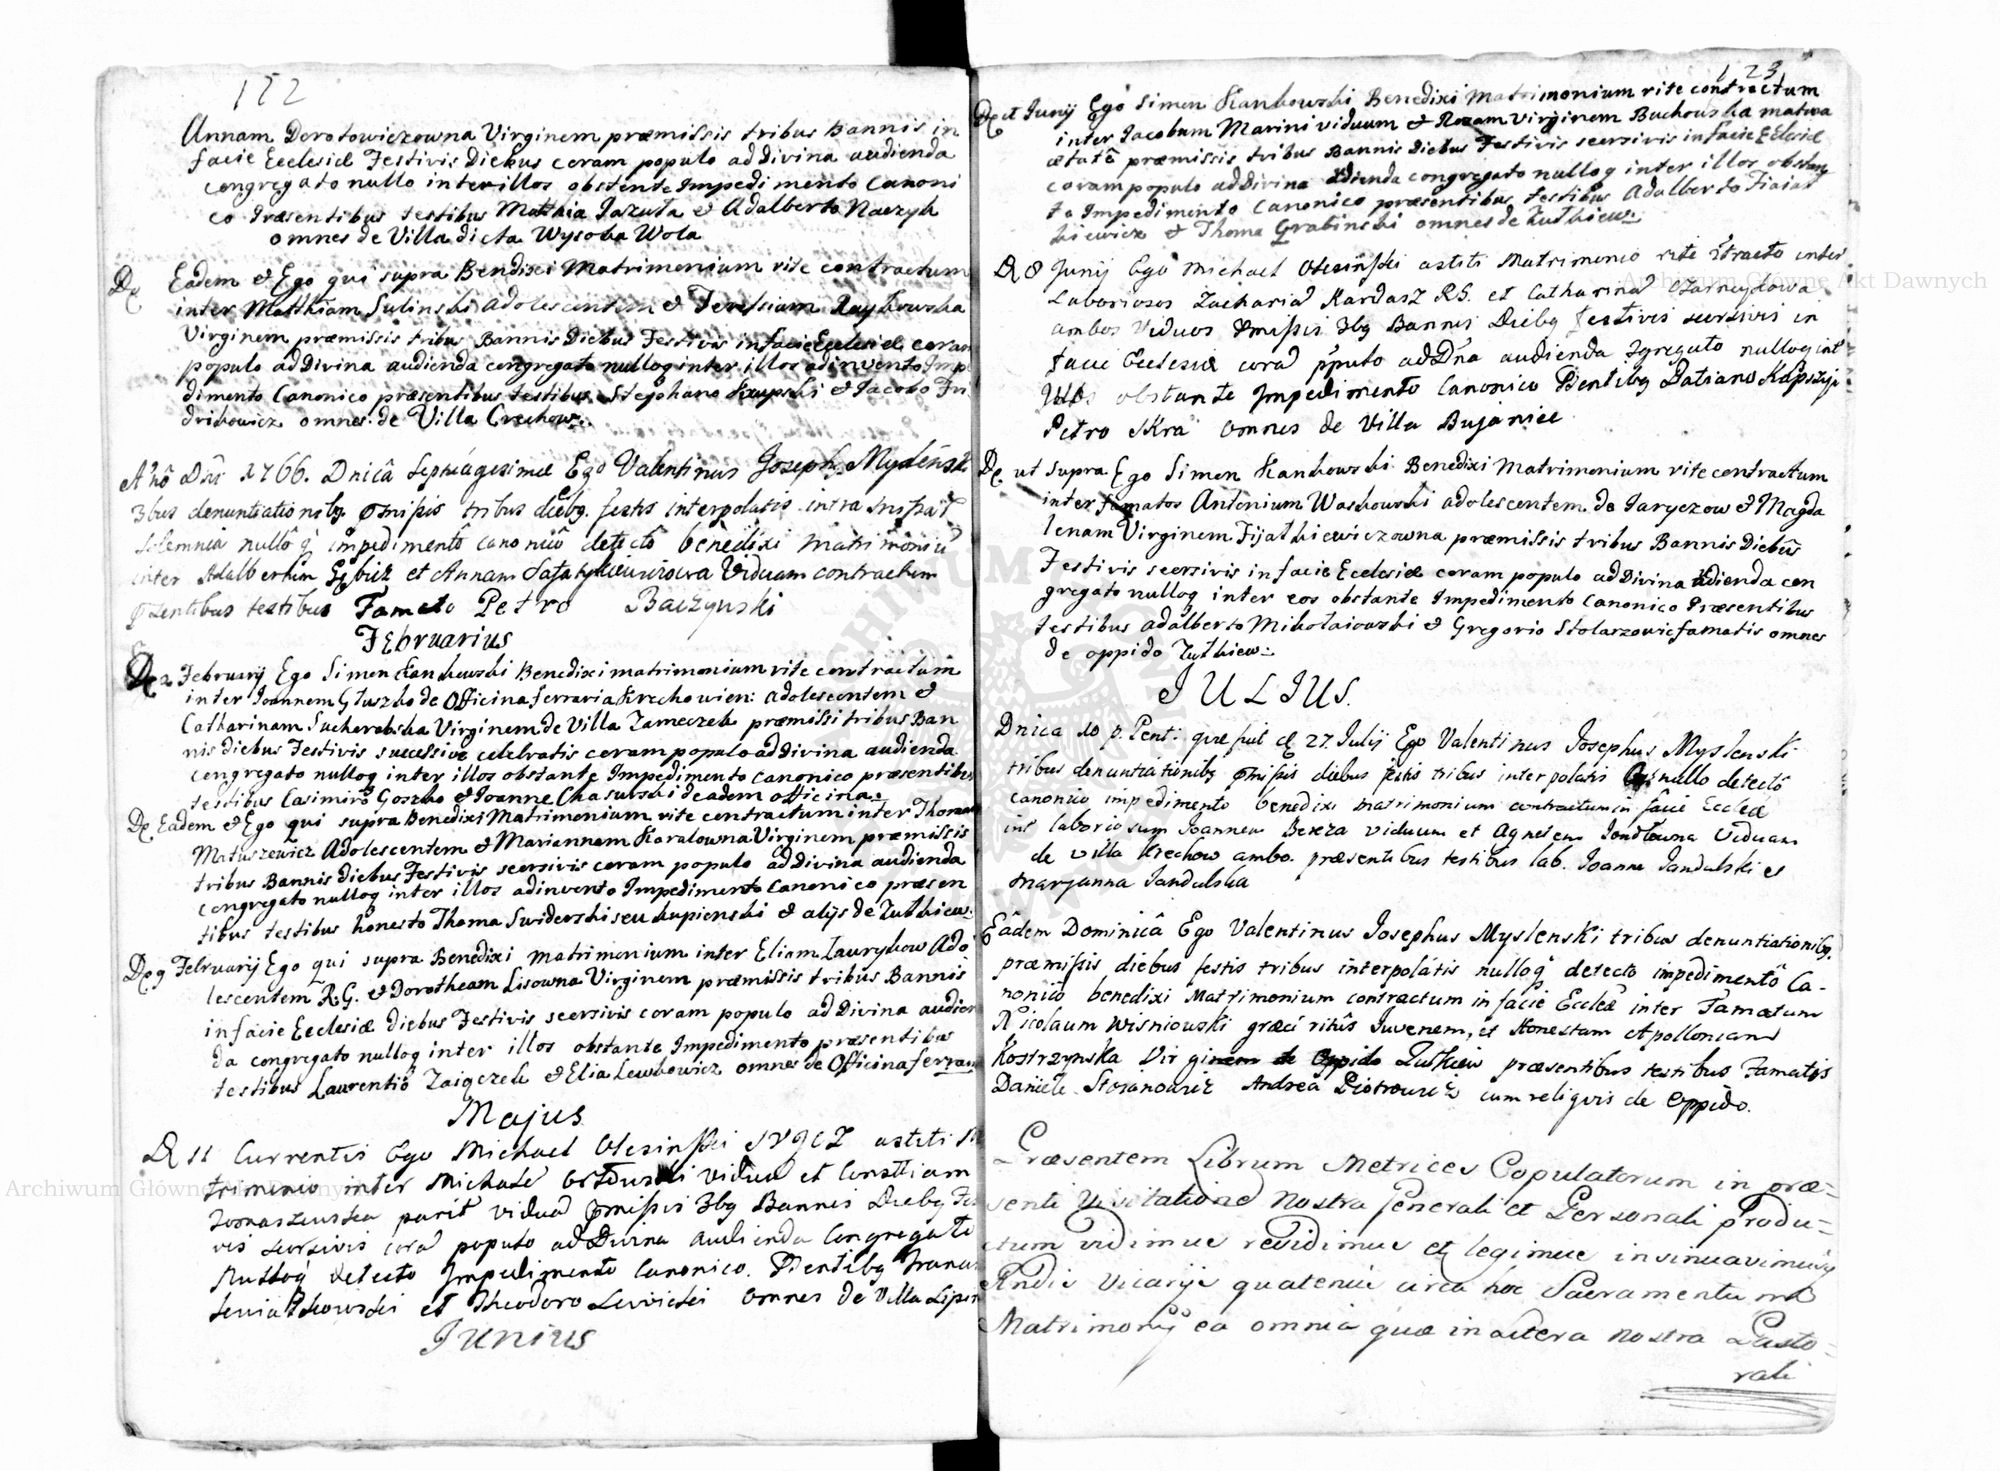 122
Annam Dorotowiczowna Virginem præmissis tribus Bannis in
facie Ecclesiæ Festivis Diebus coram populo ad Divina audienda
congregato nullo inter illos obstente Impedimento Canoni
co Præsentibus testibus Matthia Jazuta & Adalberto Naczyk
omnes de Villa dicta Wysoka Wola
De Eadem & Ego qui supra Bendixi Matrimonium rite contractum
inter Matthiam Sulinski adolescentem & Teressiam Raykowska
Virginem præmissis tribus Bannis Diebus Festivis in facie Ecclesiæ coram
populo ad Divina audienda congregato nulloq inter illos adinvento Impe
dimento Canonico præsentibus testibus Stephano Krupski & Jacobo Fri
drikowicz omnes de Villa Crechow:
Año Dñi 1766. Dnicâ Septuagesimæ Ego Valentinus Joseph Myslenski
3bus denuntiationibq pmissis tribus diebq festis interpolatis intra
solemnia nullô q impedimentô canonicô detectô benedixi matrimoniũ
inter Adalbertum et Annam Viduam contractum
testibus Famato Petro Baczynski
FEbruarius
De 2 Februarij Ego Simon Kankowski Benedixi matrimonium rite contractum
inter Joannem Gluszko de Officina Ferraria Krechowien: adolescentem &
Catharinam Sucherabska Virginem de Villa Zameczek præmissi tribus Ban
nis diebus Festivis successive celebratis coram populo ad Divina audienda
congregato nulloq inter illos obstante Impedimento Canonico præsentibus
testibus Casimiro Goszko & Joanne Chasurski de eadem officina:
De Eadem & Ego qui supra Benedixi Matrimonium rite contractum inter Thomam
Matuszewicz Adolescentem & Mariannam Koralowna Virginem præmissis
tribus Bannis diebus Festivis seersivis coram populo ad Divina audienda
congregato nulloq inter illos adinvento Impedimento Canonico præsen
tibus testibus honesto Thoma Swiderski seu kupienski & alijs de Zutkiew:
De 9 Februarij Ego qui supra Benedixi matrimonium inter Eliam Laurykow Ado
lescentem R.G. & Dorotheam Lisowna Virginem præmissis tribus Bannis
in facie Ecclesiæ diebus Festivis seersivis coram populo ad Divina audien
da congregato nulloq inter illos obstante Impedimento præsentibus
testibus Laurentiô Zaiączek & Elia Lewkowicz omnes de Officina ferraria
Majus
D 11 Currentis Ego Michael Olesinski astiti Ma
trimonio inter Michaele viduũ et
Tomaszewska parit viduã pmissis 3bq Bannis Diebq Fes
vis seersivis corã populo ad Divina audienda Congregato
Nulloq detecto Impedimento Canonico. Pbentibq
et Theodoro Levicki omnes de Villa Lipin
Junius
123
De ut Junij Ego Simon Kankowski Benedixi Matrimonium rite contractum
inter Jacobum Marini viduum & Rozam Virginem Buchowska matura
ætatê præmissis tribus Bannis Diebus Festivis seersivis in facie Ecclesiæ
coram populo ad Divina adienda congregato nulloq inter illos obstan
to Impedimento Canonico præsentibus testibus Adalberto Fiaiat
kiewicz & Thoma Grabinski omnes de Zutkiew:
D 8 Junij Ego Michael Olesinski astiti Matrimonio rite 9tracto inter
Laboriosos Zachariã Kardasz R.G. et Catharinã Czarneydowa
ambos Viduos pmissis 3bq Bannis Diebq festivis seersivis in
facie Ecclesiæ corã pputo ad Dña audienda 9gregato nulloq int
illos obstante Impedimento Canonico Pbentibq Datiano Kapszyj
Petro Skra omnes de Villa Bujaniec
De ut supra Ego Simon Kankowski Benedixi Matrimonium rite contractum
inter famatos Antonium Waskowski adolescentem de Jaryczow & Magda
lenam Virginem Fijatkiewiczowna præmissis tribus Bannis Diebus
Festivis seersivis in facie Ecclesiæ coram populo ad Divina adienda con
gregato nulloq inter eos obstante Impedimento Canonico Præsentibus
testibus adalberto Mikotaiowski & Gregorio Stolarzowic famatis omnes
de oppido Zutkiew:
JULIUS.
Dnica 10 p. Pent: quæ fuit 27. Julij Ego Valentinus Josephus Myslenski
tribus denuntiationibq pmissis diebus festis tribus interpolatis nullo detectô
canonico impedimento benedixi matrimonium contractum in facie Eccleæ
int laboriosum Joannem Bereza viduum et Agnetem Jondtowna Viduam
de villa Krechow ambo. præsentibus testibus lab. Joanne Jandulski et
Maryanna Jandulska
Eâdem Dominicâ Ego Valentinus Josephus Myslenski tribus denuntiationibq
præmissis diebus festis tribus interpolatis nulloq detecto impedimentô Ca-
nonicô benedixi Matrimonium contractum in facie Eccleæ inter Famatum
Nicolaum Wisniouski græci ritûs Juvenem, et Honestam Apolloniam
Kostrzynska Virginem de Oppido Zutkiew præsentibus testibus Famatis
Daniele Stojanowicz Andrea Piotrowicz cum reliquis de Oppido.
Præsentem Librum Metrices Copulatorum in præ=
senti Visitatione Nostra Generali et Personali produ=
ctum vidimus revidimus et legimus insinuavimusq
Vicarijs quatenus circa hoc Sacramentum
Matrimonij ea omnia quæ in Litera nostra Pasto=
rali
Archiwum Główne Akt Dawnych
Archiwum Główne Akt Dawnych